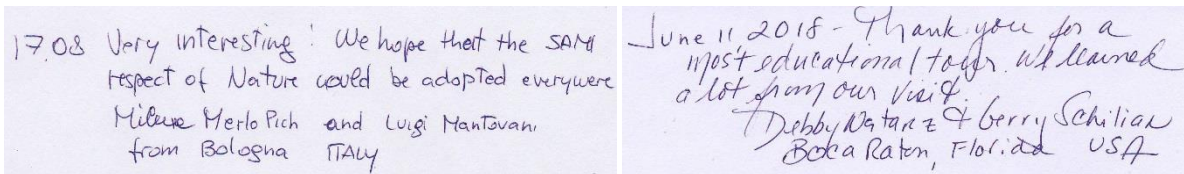 17.08 Very interesting! We hope that the SAMI
respect of Nature would be adopted everywere
Milena Merlo Pich and Luigi Mantovani
from Bologna ITALY
June 11, 2018 - Thank you for a
most educational tour. We learned
a lot from our visit.
Debby Natanz & Gerry Schilian
Boca Raton, Florida USA